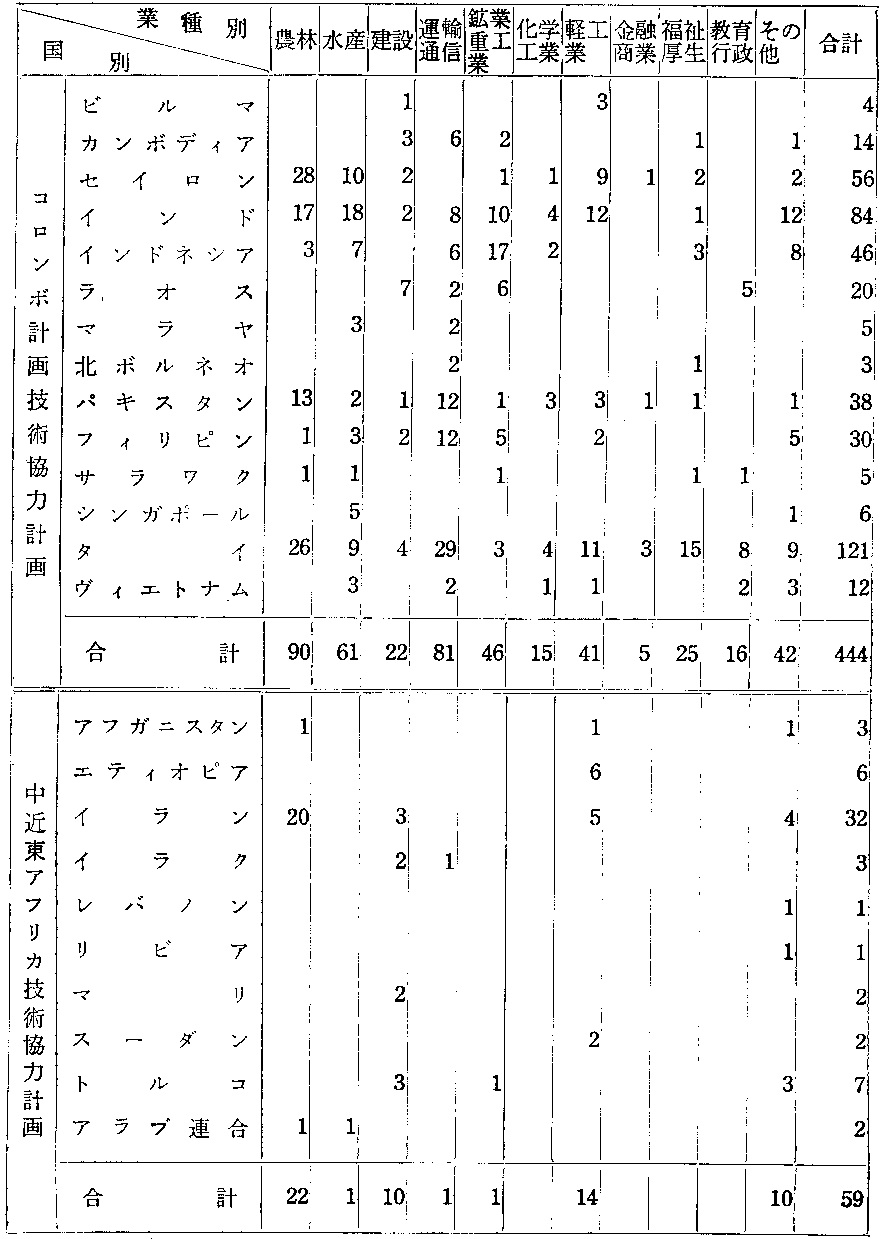 業種別
国別
農林 水産 建設 運輸通信 鉱業重工業 化学工業 軽工業 金融商業 福祉厚生 教育行政 その他 合計
コロンボ計画技術協力計画
ビルマ 1 3 4
カンボディア 3 6 2 1 1 14
セイロン 28 10 2 1 1 9 1 2 2 56
インド 17 18 2 8 10 4 12 1 12 84
インドネシア 3 7 6 17 2 3 8 46
ラオス 7 2 6 5 20
マラヤ 3 2 5
北ボルネオ 2 1 3
パキスタン 13 2 1 12 1 3 3 1 1 1 38
フィリピン 1 3 2 12 5 2 5 30
サラワク 1 1 1 1 1 5
シンガポール 5 1 6
タイ 26 9 4 29 3 4 11 3 15 8 9 121
ヴィエトナム 3 2 1 1 2 3 12
合計 90 61 22 81 46 15 41 5 25 16 42 444
中近東アフリカ技術協力計画
アフガニスタン 1 1 1 3
エティオピア 6 6
イラン 20 3 5 4 32
イラク 2 1 3
レバノン 1 1
リビア 1 1
マリ 2 2
スーダン 2 2
トルコ 3 1 3 7
アラブ連合 1 1 2
合計 22 1 10 1 1 14 10 59